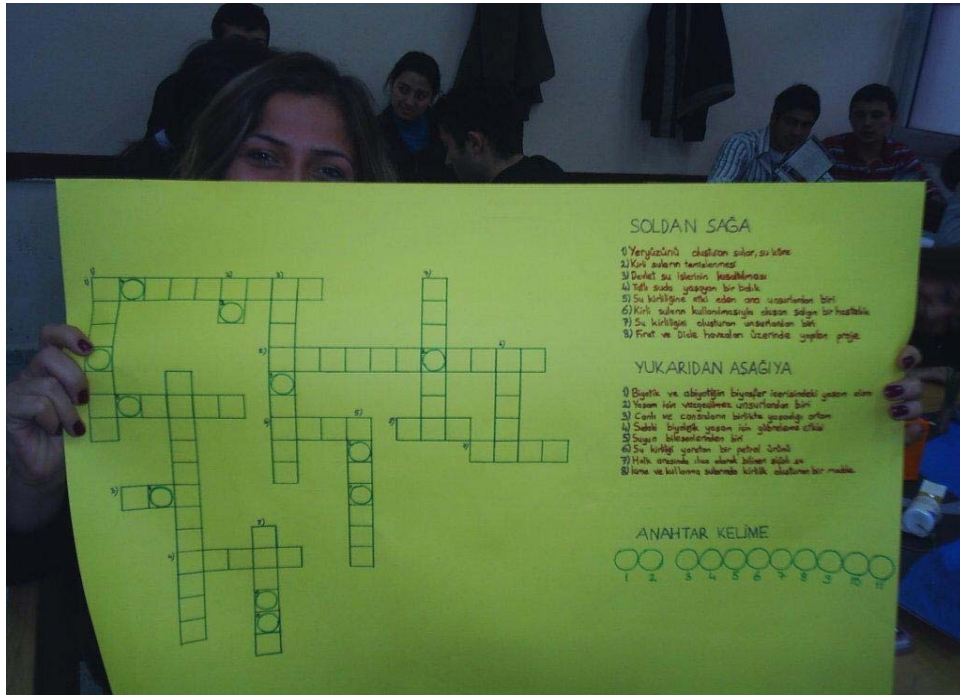 SOLDAN SAĞA
1) Yeryüzünü oluşturan sular, su küre
2) Kirli suların temizlenmesi
3) Devlet su işlerinin kısaltılması
4) Tatlı suda yaşayan bir balık
5) Su kirliliğine etki eden ana unsurlardan biri
6) Kirli suların kullanılmasıyla oluşan salgın bir hastalık
7) Su kirliliğini oluşturan unsurlardan biri
8) Fırat ve Dicle havzaları üzerinde yapılan proje
YUKARIDAN AŞAĞIYA
1) Biyotik ve abiyotiğin biyosfer içerisindeki yaşam alanı
2) Yaşam için vazgeçilmez unsurlardan biri
3) Canlı ve cansızların birlikte yaşadığı ortam
4) Sudaki biyolojik yaşam için gübreleme etkisi
5) Suyun bileşenlerinden biri
6) Su kirliliği yaratan bir petrol ürünü
7) Halk arasında ilıca olarak bilinen şifalı su
8) İçme ve kullanma sularında kirlilik oluşturan bir madde
ANAHTAR KELİME
1 2 3 4 5 6 7 8 9 10 11